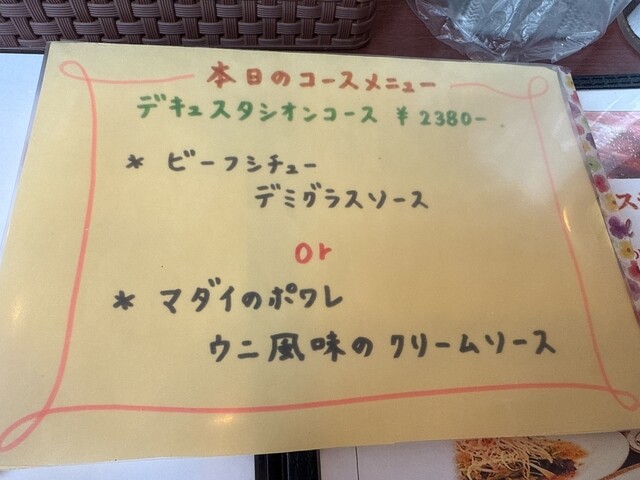 本日のコースメニュー
デキュスタシオンコース ¥2380-
* ビーフシチュー
デミグラスソース
or
* マダイのポワレ
ウニ風味のクリームソース